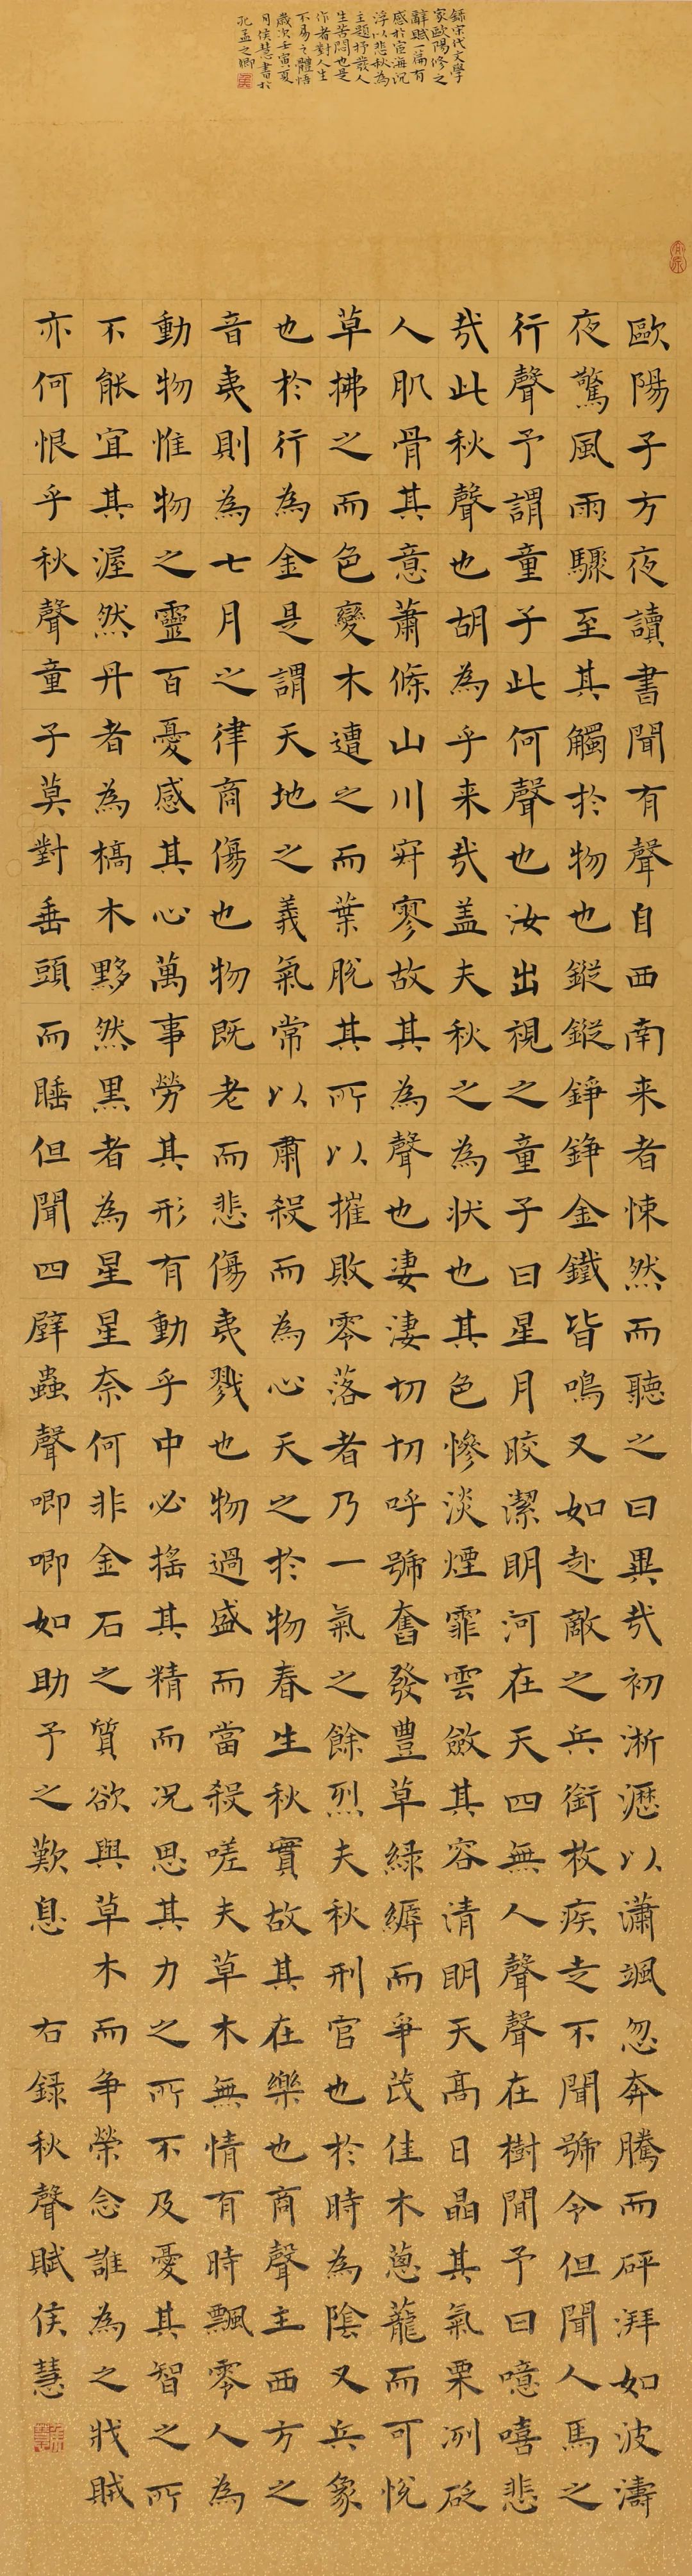 錄宋代文學
家歐陽修之
辭賦一篇有
感於宦海沉
浮以悲秋為
主題抒發人
生苦悶也是
作者對人生
不易之體悟
歲次壬寅夏
月侯慧書於
孔孟之鄉
歐陽子方夜讀書聞有聲自西南来者悚然而聽之曰異哉初淅瀝以瀟颯忽奔騰而砰湃如波濤
夜驚風雨驟至其觸於物也鏦鏦錚錚金鐵皆鳴又如赴敵之兵銜枚疾走不聞號令但聞人馬之
行聲予謂童子此何聲也汝出視之童子曰星月皎潔明河在天四無人聲聲在樹間予曰噫嘻悲
哉此秋聲也胡為乎来哉盖夫秋之為状也其色慘淡煙霏雲斂其容清明天高日晶其氣栗冽砭
人肌骨其意蕭條山川寂寥故其為聲也淒淒切切呼號奮發豐草綠縟而爭茂佳木蔥蘢而可悅
草拂之而色變木遭之而葉脫其所以摧敗零落者乃一氣之餘烈夫秋刑官也於時為陰又兵象
也於行為金是謂天地之義氣常以肅殺而為心天之於物春生秋實故其在樂也商聲主西方之
音夷則為七月之律商傷也物既老而悲傷夷戮也物過盛而當殺嗟夫草木無情有時飄零人為
動物惟物之靈百憂感其心萬事勞其形有動乎中必搖其精而况思其力之所不及憂其智之所
不能宜其渥然丹者為槁木黟然黑者為星星奈何非金石之質欲與草木而爭榮念誰為之戕賊
亦何恨乎秋聲童子莫對垂頭而睡但聞四壁蟲聲唧唧如助予之歎息 右録秋聲賦侯慧